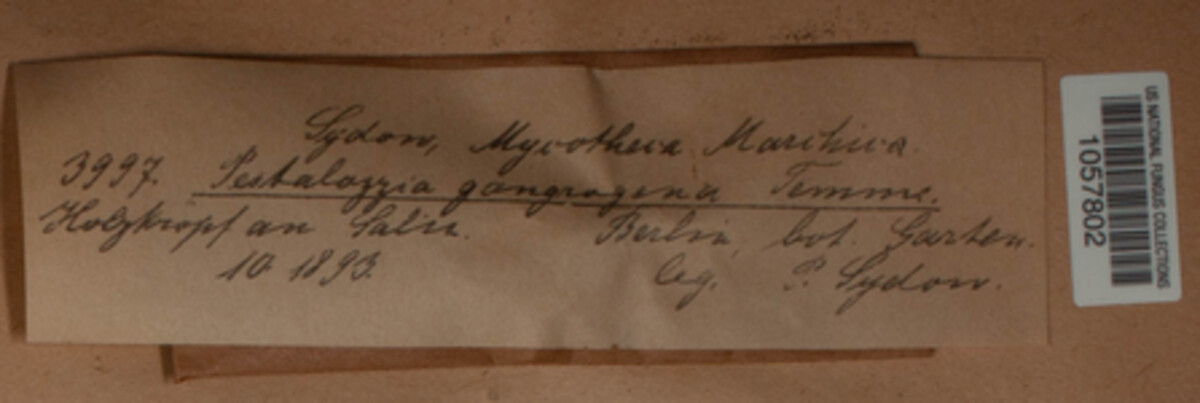 Sydow, Mycotheca Marchica.
3997. Pestalozzia gongrogena Temme.
Holzkropf an Salix. Berlin, bot. Garten.
10 1893. leg. P. Sydow.
US NATIONAL FUNGUS COLLECTIONS
1057802